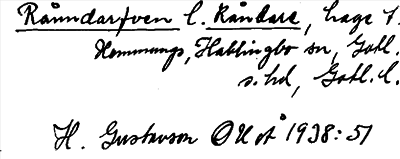 Rånndarfven l. Råndare, hage t.
Hemmungs, Hablingbo sn, Gotl.
s. hd, Gotl. l.
H. Gustavson OUoÅ 1938: 51